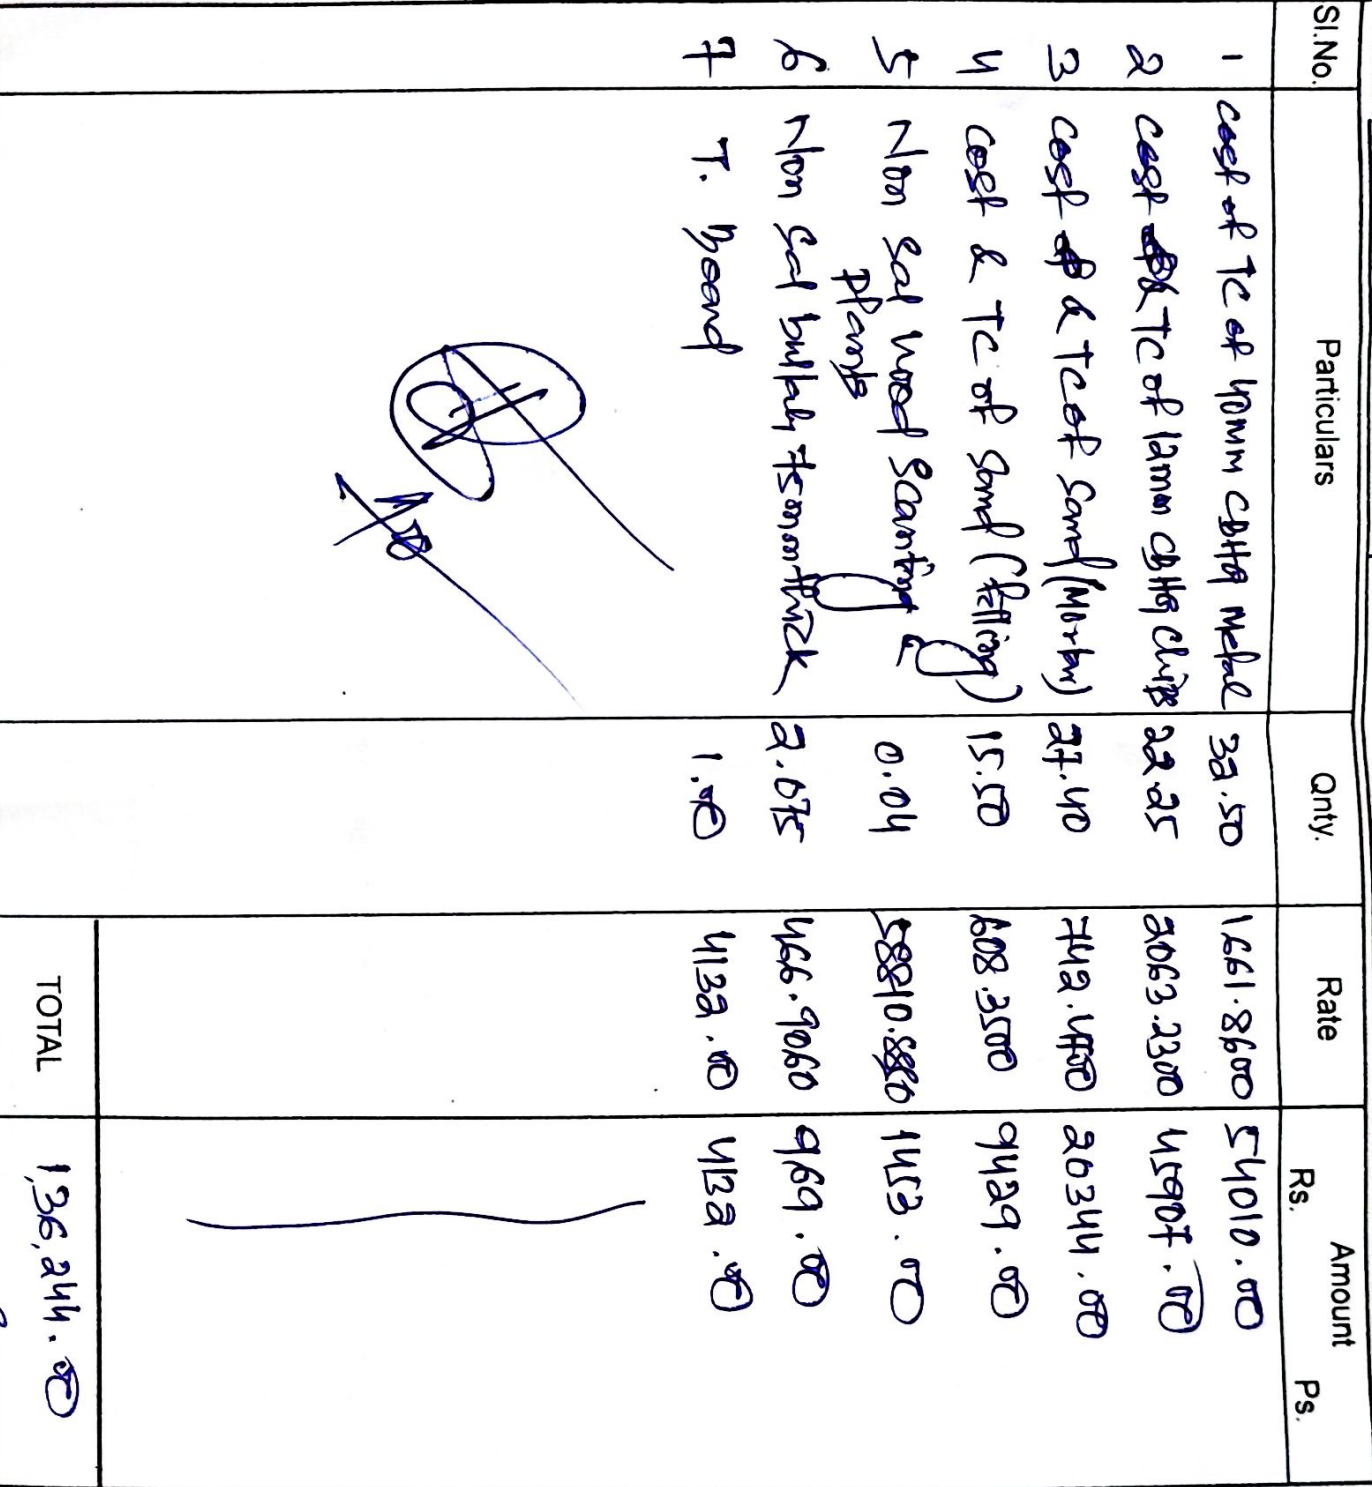 Sl.No. Particulars Qnty. Rate Amount
Rs. Ps.
1 Cost of TC of 40mm CBHG Metal 32.50 1661.8600 54010.00
2 Cost & TC of 12mm CBHG Chips 22.25 2063.2300 45907.00
3 Cost of & TC of Sand (Mortar) 27.40 742.4700 20344.00
4 Cost & TC of Sand (filling) 15.50 608.3500 9429.00
5 Non Sal wood Scantling & 0.04 1453.00
Plank
6 Non Sal bullah 75mm thick 2.075 466.9060 969.00
7 T. Board 1.00 4132.00 4132.00
TOTAL 1,36,244.00